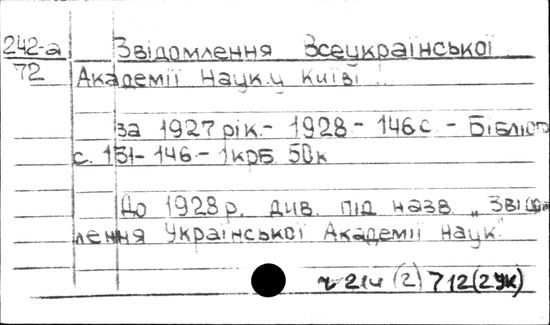 242-а Звідомлення Всеукраїнської
72 Академії Наук.у Київі..
за 1927 рік.- 1928 - 146 с. - Бібліог
с. 131-146.- 1 крб. 50к
До 1928 р. див. під назв. „Звідом
лення Української Академії наук."
(2) 712(2УК)